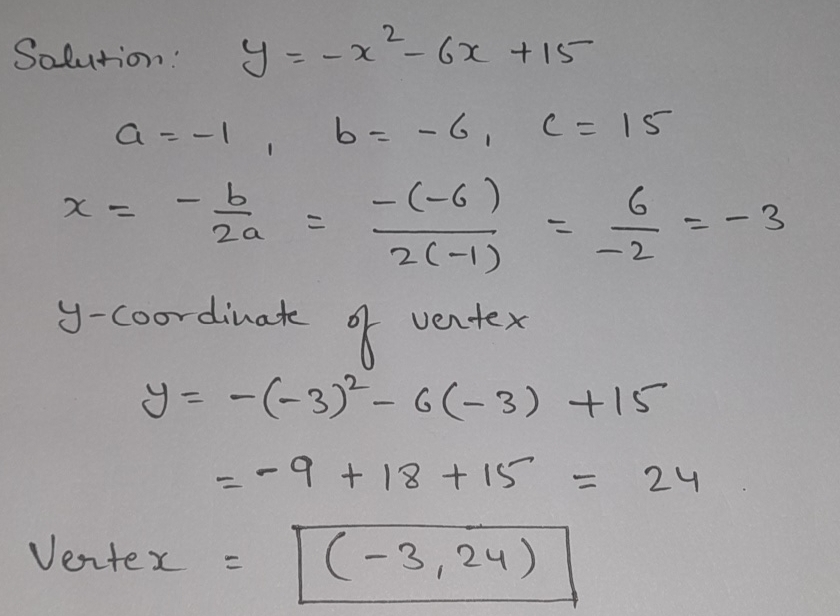 Solution: y = -x² - 6x + 15
a = -1, b = -6, c = 15
x = -b/2a = -(-6)/2(-1) = 6/-2 = -3
y-coordinate of vertex
y = -(-3)² - 6(-3) + 15
= -9 + 18 + 15 = 24.
Vertex = (-3, 24)